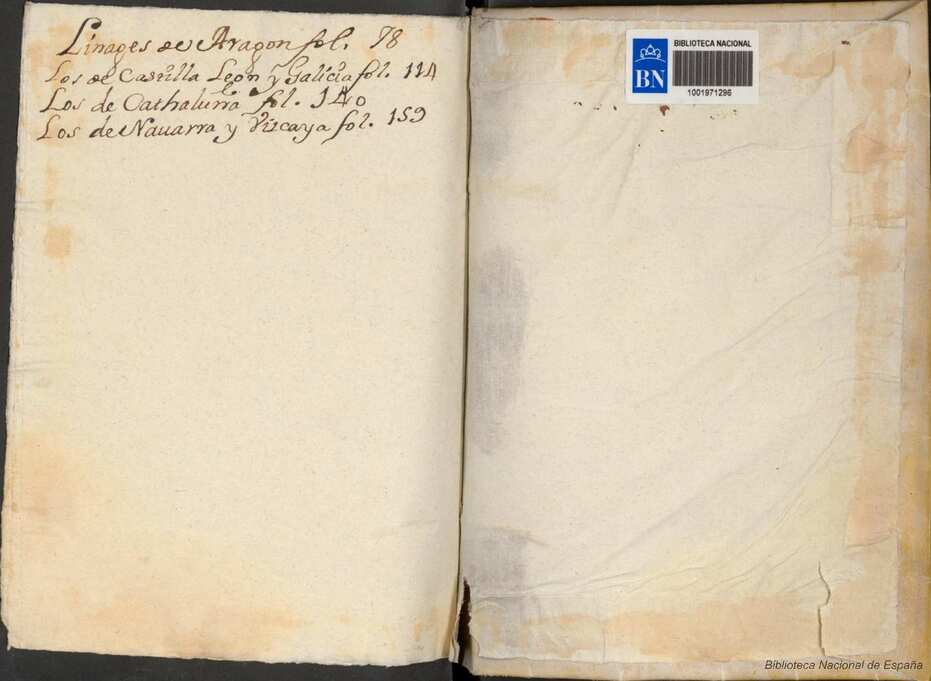 Linages de Aragon fol. 78
Los de Castilla Leon y Galicia fol. 114
Los de Cathaluña fol. 140
Los de Nauarra y Vizcaya fol. 159
BIBLIOTECA NACIONAL
BN
1001971296
Biblioteca Nacional de España